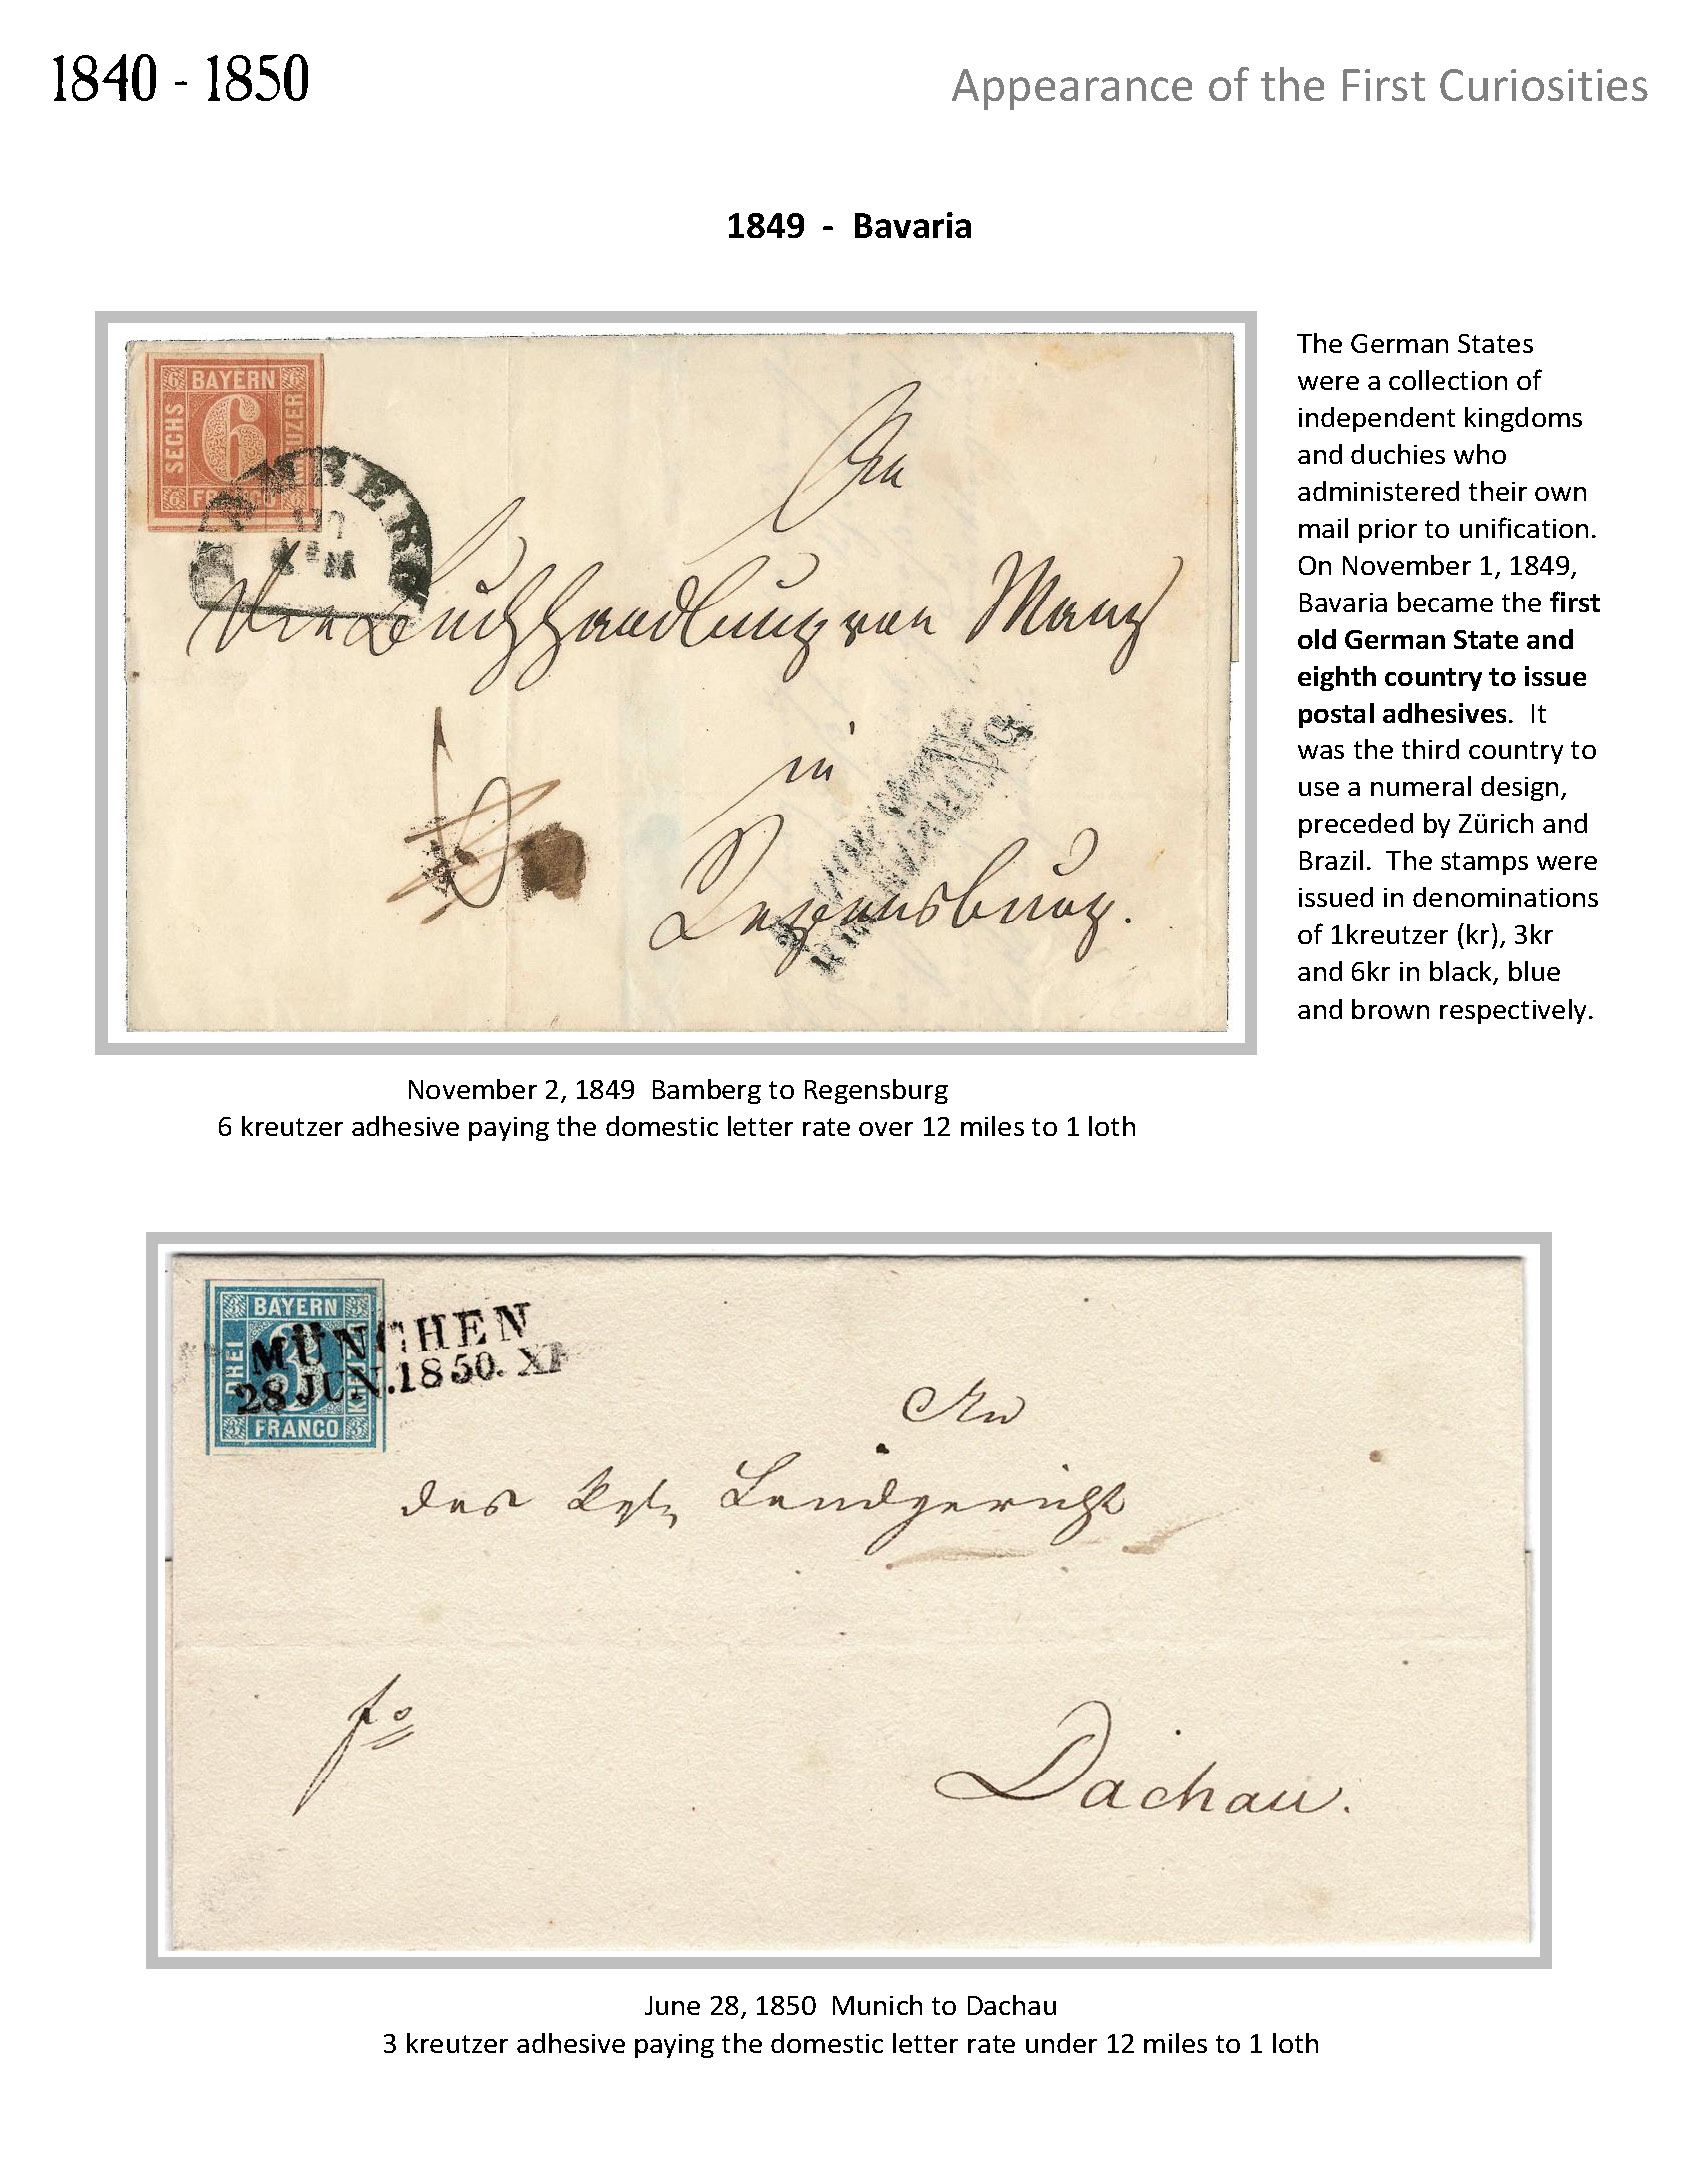 1840 - 1850
Appearance of the First Curiosities
1849 - Bavaria
BAYERN
SECHS
6
KREUZER
FRANCO
BAMBERG
An
die Buchhandlung von Manz
in
Regensburg.
The German States
were a collection of
independent kingdoms
and duchies who
administered their own
mail prior to unification.
On November 1, 1849,
Bavaria became the first
old German State and
eighth country to issue
postal adhesives. It
was the third country to
use a numeral design,
preceded by Zürich and
Brazil. The stamps were
issued in denominations
of 1kreutzer (kr), 3kr
and 6kr in black, blue
and brown respectively.
November 2, 1849 Bamberg to Regensburg
6 kreutzer adhesive paying the domestic letter rate over 12 miles to 1 loth
BAYERN
DREI
3
FRANCO
MÜNCHEN
28 JUN. 1850. XI
An
das Kgl. Landgericht
fo
Dachau.
June 28, 1850 Munich to Dachau
3 kreutzer adhesive paying the domestic letter rate under 12 miles to 1 loth